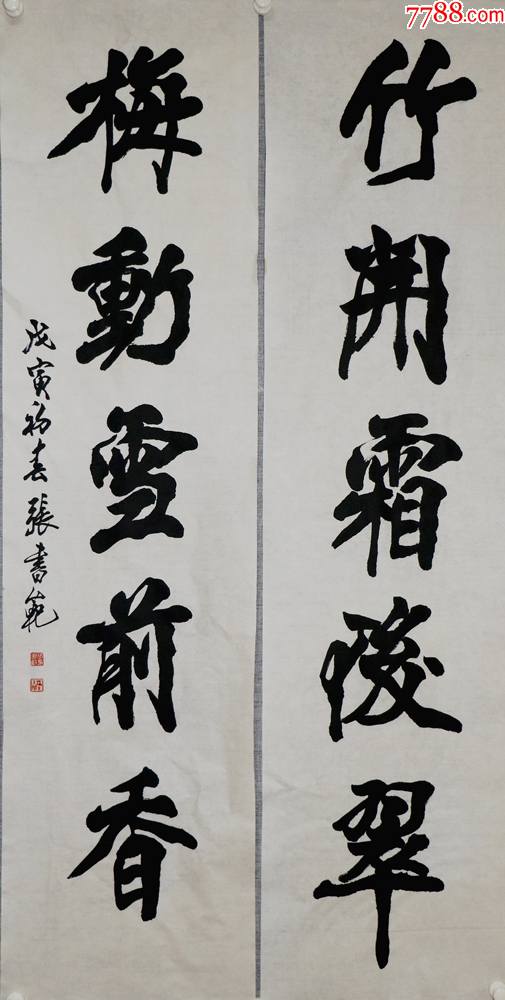 7788.com
竹開霜後翠
梅動雪前香
戊寅初春張書範